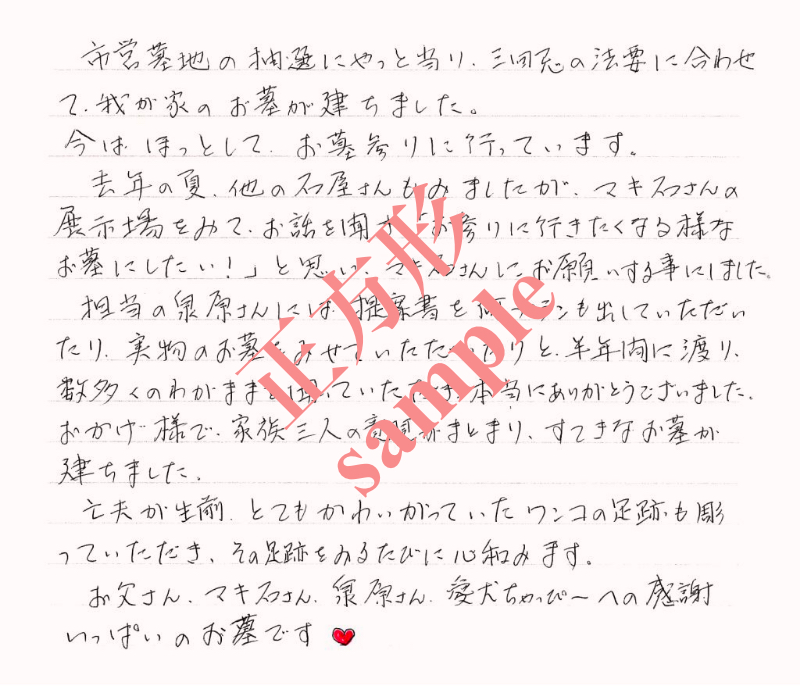 市営墓地の抽選にやっと当り、三回忌の法要に合わせ
て、我が家のお墓が建ちました。
今は ほっとして、お墓参りに行っています。
去年の夏、他の石屋さんもみましたが、マキ石さんの
展示場をみて、お話を聞き「お参りに行きたくなる様な
お墓にしたい!」と思い、マキ石さんにお願いする事にしました。
担当の泉原さんには、提案書を何プランも出していただい
たり、実物のお墓をみせていただいたりと、半年間に渡り、
数多くのわがままを聞いていただき、本当にありがとうございました。
おかげ様で、家族三人の意見がまとまり、すてきなお墓が
建ちました。
亡夫が生前、とてもかわいがっていたワンコの足跡も彫
っていただき、その足跡をみるたびに心和みます。
お父さん、マキ石さん、泉原さん、愛犬ちゃっぴ〜への感謝
いっぱいのお墓です
正方形
sample